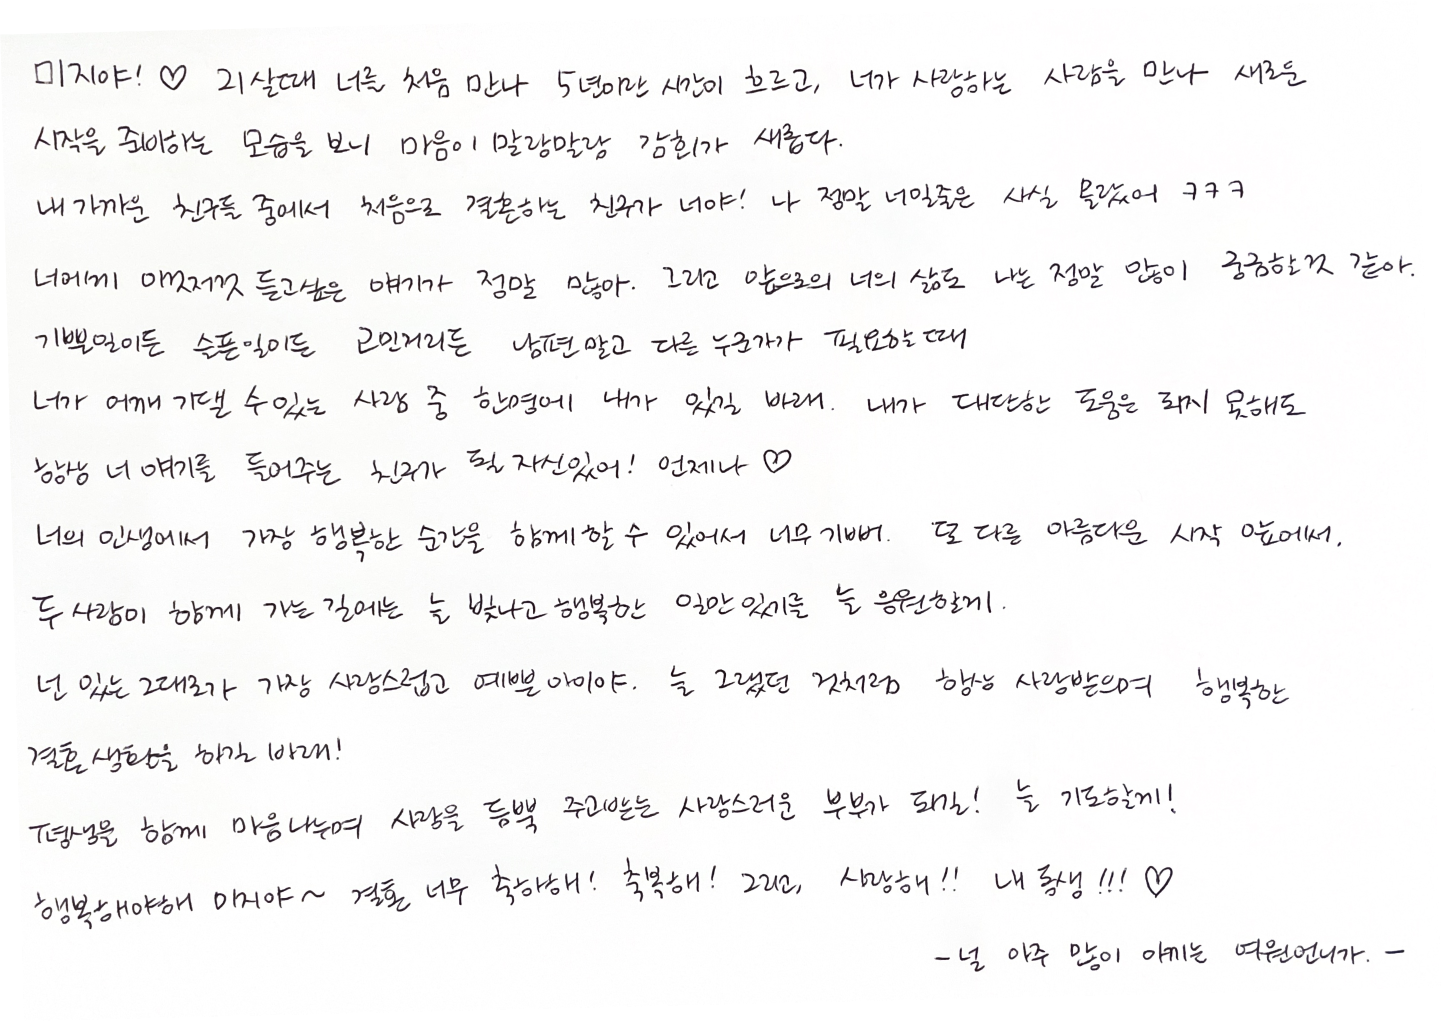 미지야! ♡ 21살때 너를 처음 만나 5년이란 시간이 흐르고, 너가 사랑하는 사람을 만나 새로운
시작을 준비하는 모습을 보니 마음이 말랑말랑 감회가 새롭다.
내 가까운 친구들 중에서 처음으로 결혼하는 친구가 너야! 나 정말 너일줄은 사실 몰랐어 ㅋㅋㅋ
너에게 이것저것 듣고싶은 얘기가 정말 많아. 그리고 앞으로의 너의 삶도 나는 정말 많이 궁금할것 같아.
기쁜일이든 슬픈일이든 고민거리든 남편말고 다른 누군가가 필요하는때
너가 어깨 기댈 수 있는 사람 중 한명에 내가 있길 바래. 내가 대단한 도움은 되지 못해도
항상 너 얘기를 들어주는 친구가 될 자신있어! 언제나 ♡
너의 인생에서 가장 행복한 순간을 함께 할 수 있어서 너무 기뻐. 또 다른 아름다운 시작 앞에서,
두 사람이 함께 가는 길에는 늘 빛나고 행복한 일만 있기를 늘 응원할게.
넌 있는 그대로가 가장 사랑스럽고 예쁜 아이야. 늘 그랬던 것처럼 항상 사랑받으며 행복한
결혼 생활을 하길 바래!
평생을 함께 마음나누며 사랑을 듬뿍 주고받는 사랑스러운 부부가 되길! 늘 기도할게!
행복해야해 미지야~ 결혼 너무 축하해! 축복해! 그리고, 사랑해!! 내 동생!!! ♡
- 널 아주 많이 아끼는 여원언니가. -